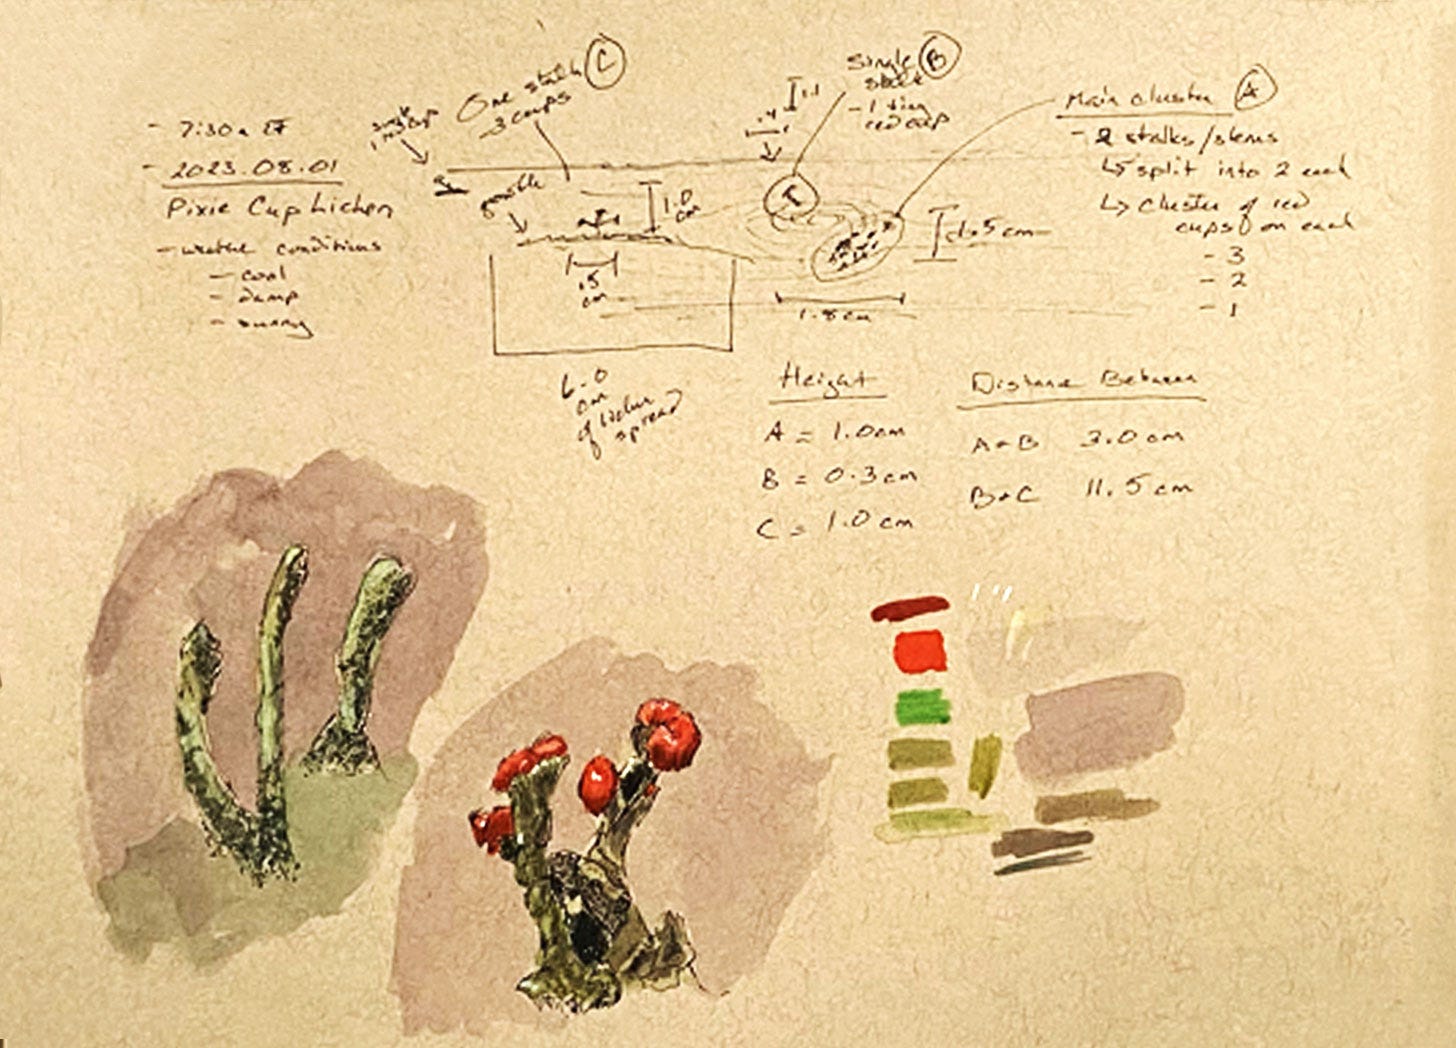 - 7:30a ET
- 2023.08.01
Pixie Cup Lichen
- conditions
- cool
- damp
- sunny
One stalk C
3 cups
possible
1.0
cm
.5
cm
6.0
cm
of lichen
spread
Single B
stalk
- 1 tiny
red cup
1.1
.4
1.5 cm
1.8 cm
Main cluster A
- 2 stalks/stems
↳ split into 2 each
↳ cluster of red
cups on each
- 3
- 2
- 1
Height
A = 1.0cm
B = 0.3cm
C = 1.0 cm
Distance Between
A-B 3.0 cm
B-C 11.5 cm